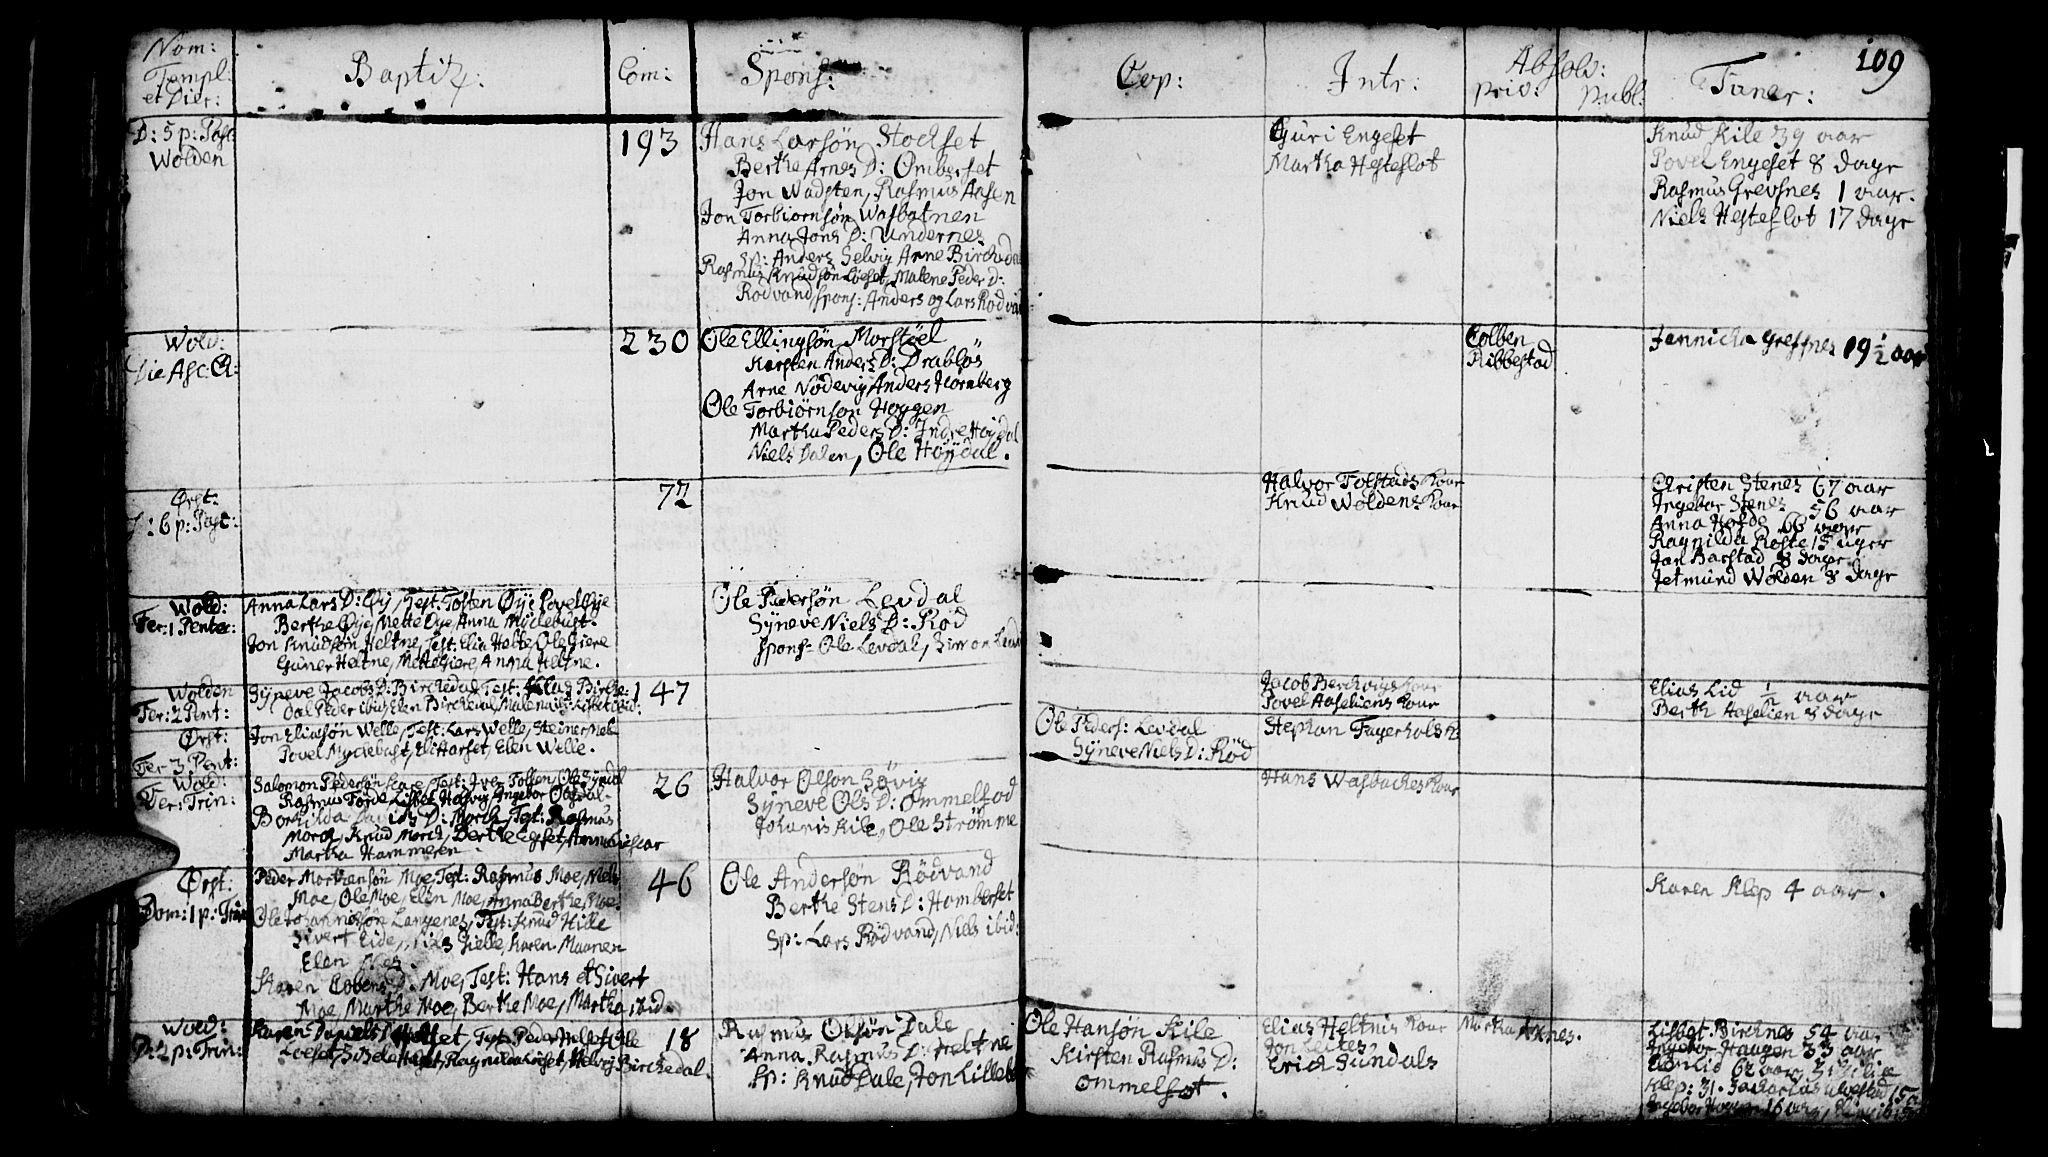 109
Nom: Templ: et Dier:
Baptiz:
Com:
Spons:
Cop:
Intr:
Absolv:
priv: publ:
Funer:
D: 5 p: Pasc:
Wolden
193
Hans Larsøn Stochset
Berthe Arnes D: Omberset
Jon Wadsten, Rasmus Aasen
Jon Torbiørnsøn Wasbotnen
Anna Jons D: Undernes
Sp: Anders Selvig Arne Birchedal
Rasmus Knudsøn Løeset, Malene Peder D:
Rødvand, spons: Anders og Lars Rødvan
Guri Engeset
Martha Hesteflot
Knud Kile 39 aar
Povel Engeset 8 dage
Rasmus Grevsnes 1 aar.
Niels Hesteflot 17 dage
Wold:
Die Asc: Ch:
230
Ole Ellingsøn Morstøel
Kirsten Anders D: Drabløs
Arne Nødevig Anders Hornberg
Ole Torbiørnsøn Høggen
Martha Peders D: Indre Høydal
Niels Dalen, Ole Høydal.
Colben
Ribbestad
Jannicha Grefsnes 19 1/2 aar
Ørst:
D: 6 p: Pasc:
72
Halvor Folstads Kone
Knud Woldens Kone
Christen Stenes 67 aar
Ingebor Stenes 56 aar
Anna Hofde 66 aar
Ragnilda Koste 15 uger
Jon Barstad 8 dage
Jetmund Wolden 8 dage
Wold:
Fer: 1 Pentec:
Anna Lars D: Øy, Test: Tosten Øye Povel Øye
Berthe Øye, Mette Øye, Anna Myclebust.
Jon Knudsøn Heltne, Test: Elia Helte, Ole Giere
Guner Heltne, Mette Giere, Anna Heltne.
Ole Pedersøn Levdal
Syneve Niels D: Rød
spons: Ole Levdal, Simon Levd
Wolden
Fer: 2 Pent:
Syneve Jacobs D: Birchedal Test: Klaus Birche:
dal Peder ibid Elen Birchedal Malene ibid: Lisbet ibid:
147
Jacob Berchvigs Kone
Povel Aaseliens Kone
Elias Lid 1/2 aar
Berth Haselien 8 dage
Ørst:
Fer 3 Pent:
Jon Eliasøn Welle, Test: Lars Welle, Steiner ibid:
Povel Myclebust, Eli Harset, Elen Welle.
Ole Peders: Levdal
Syneve Niels D: Rød
Stephan Fagerhols K:
Wold:
Fer: Trin:
Salomon Pedersøn Kare, Test: Iver Follen, Ole Syndal
Rasmus Førde, Lisbet Helsvig, Ingebor Osdal.
Borhilda Davids D: Morch, Test: Rasmus
Morch, Knud Morch, Berthe Egset, Anna
Martha Hammeren.
26
Halvor Olsøn Søvig
Syneve Ols D: Ommelfod
Johanis Kile, Ole Strømme
Hans Wasbackes Kone
Ørst:
Dom: 1 p: Trin
Peder Mortensøn Moe, Test: Rasmus Moe, Niels
Moe, Ole Moe, Elen Moe, Anna Berthe Moe.
Ole Johannesøn Langenes, Test: Knud Hille
Sivert Eide, Nils Gielle, Karen Maanen
Elen Nes.
Karen Cobens D: Moe, Test: Hans et Sivert
Moe, Marthe Moe, Berthe Moe, Martha ibid.
46
Ole Andersøn Rødvand
Berthe Stens D: Hamberset
Sp: Lars Rødvand, Niels ibid:
Karen Klep 4 aar.
Wold:
D: 2 p: Trin:
Karen Daniels D Helset, Test. Peder Helset, Ole
Løeset, Sibele Helset, Ragnilda Løeset, Helvig Birchedal.
18
Rasmus Olsøn Dale
Anna Rasmus D: Heltne
Sp: Knud Dale, Jon Lillebø
Ole Hansøn Kile
Kirsten Rasmus D:
Ommelfot.
Elias Heltnis Kone
Jon Leites
Erich Sundals
Martha Axnes.
Lisbet Birchnes 54 aar
Ingebor Haugen 33 aar
Elen Lid 62 aar,
Klep: 31.
Ingebor Haugen 16 aar